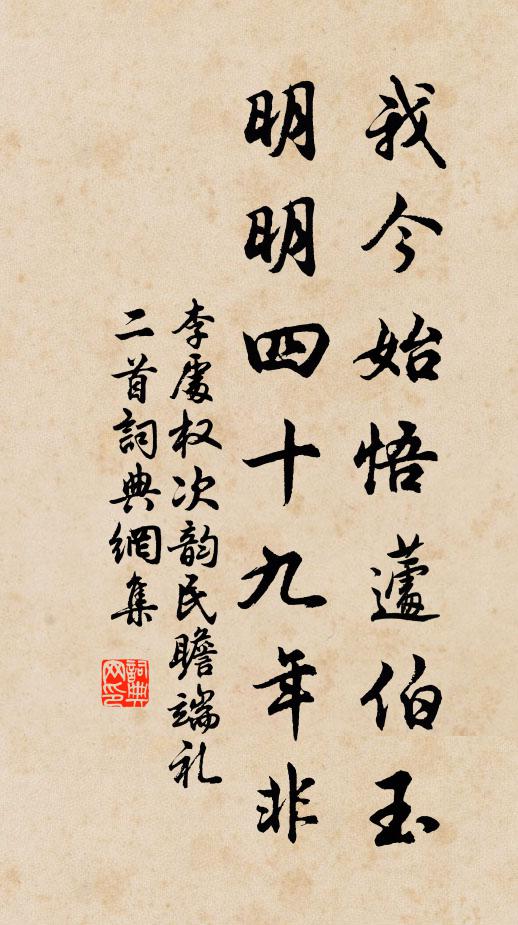 我今始悟蘧伯玉
明明四十九年非
李處权次韵民瞻端礼
二首詞典網集
詞典
网印